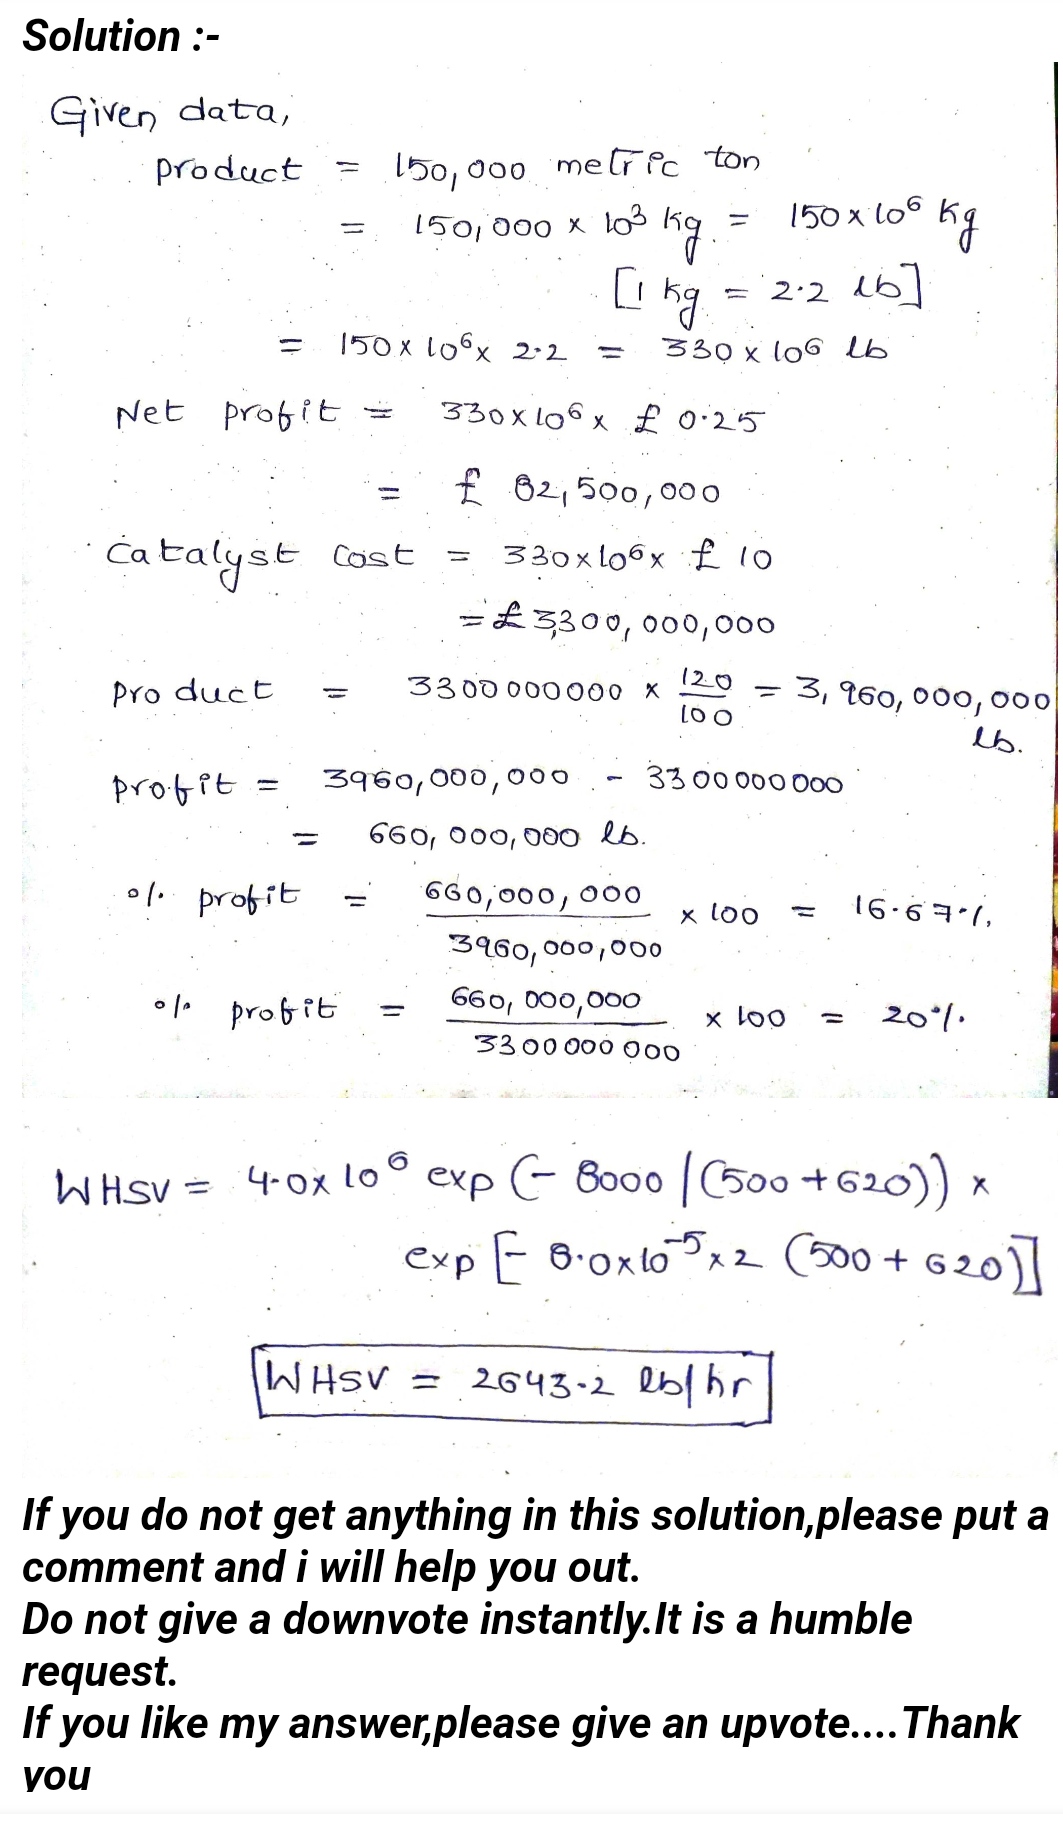 Solution :-
Given data,
product = 150,000 metric ton
= 150,000 x 10³ kg. = 150 x 10⁶ kg
[1 kg = 2.2 lb]
= 150 x 10⁶ x 2.2 = 330 x 10⁶ lb
Net profit = 330 x 10⁶ x £ 0.25
= £ 82,500,000
Catalyst cost = 330 x 10⁶ x £ 10
= £ 3,300,000,000
product = 3300000000 x 120/100 = 3,960,000,000
lb.
profit = 3960,000,000 - 3300000000
= 660,000,000 lb.
% profit = 660,000,000/3960,000,000 x 100 = 16.67%.
% profit = 660,000,000/3300000000 x 100 = 20%.
WHSV = 4.0 x 10⁶ exp (- 8000 / (500 + 620)) x
exp [- 8.0 x 10⁻⁵ x 2 (500 + 620)]
WHSV = 2643.2 lb/hr
If you do not get anything in this solution,please put a
comment and i will help you out.
Do not give a downvote instantly.It is a humble
request.
If you like my answer,please give an upvote....Thank
you